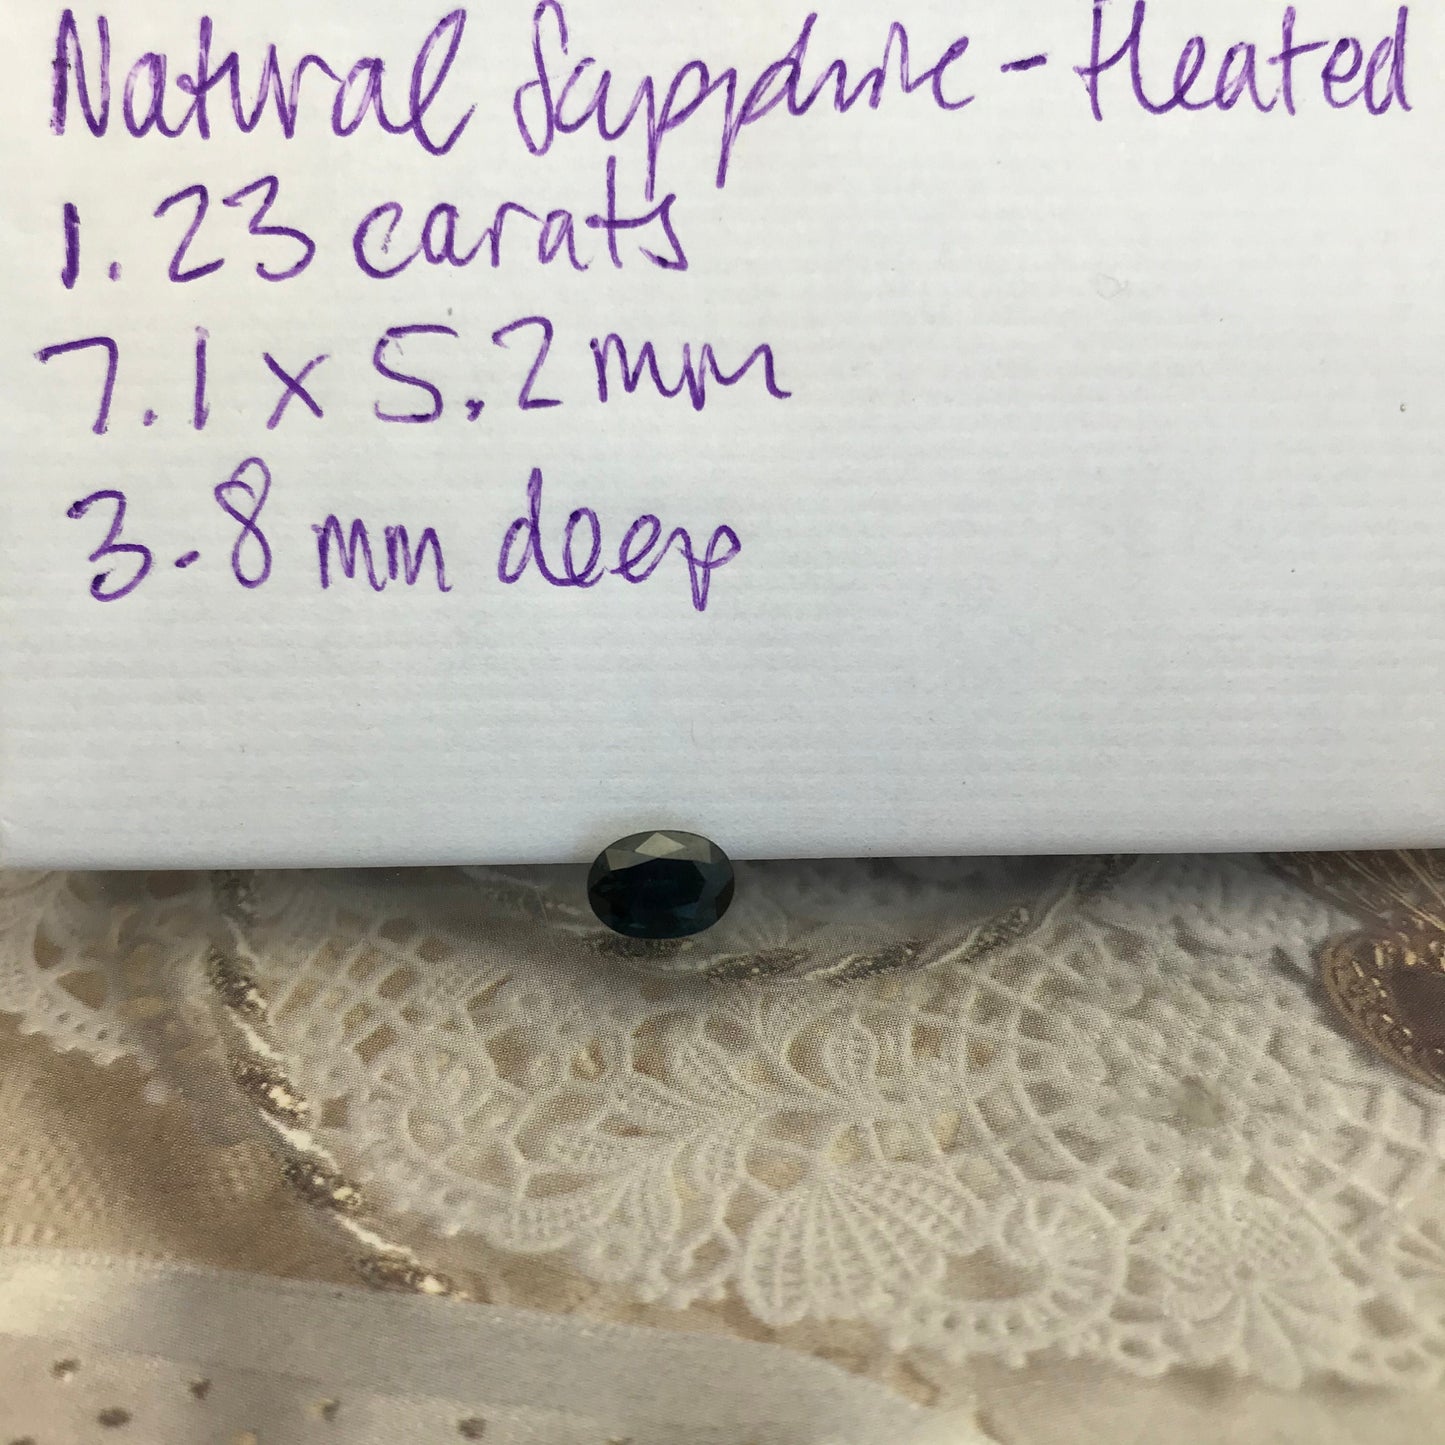 Natural Sapphire - Heated
1.23 carats
7.1 x 5.2 mm
3.8 mm deep